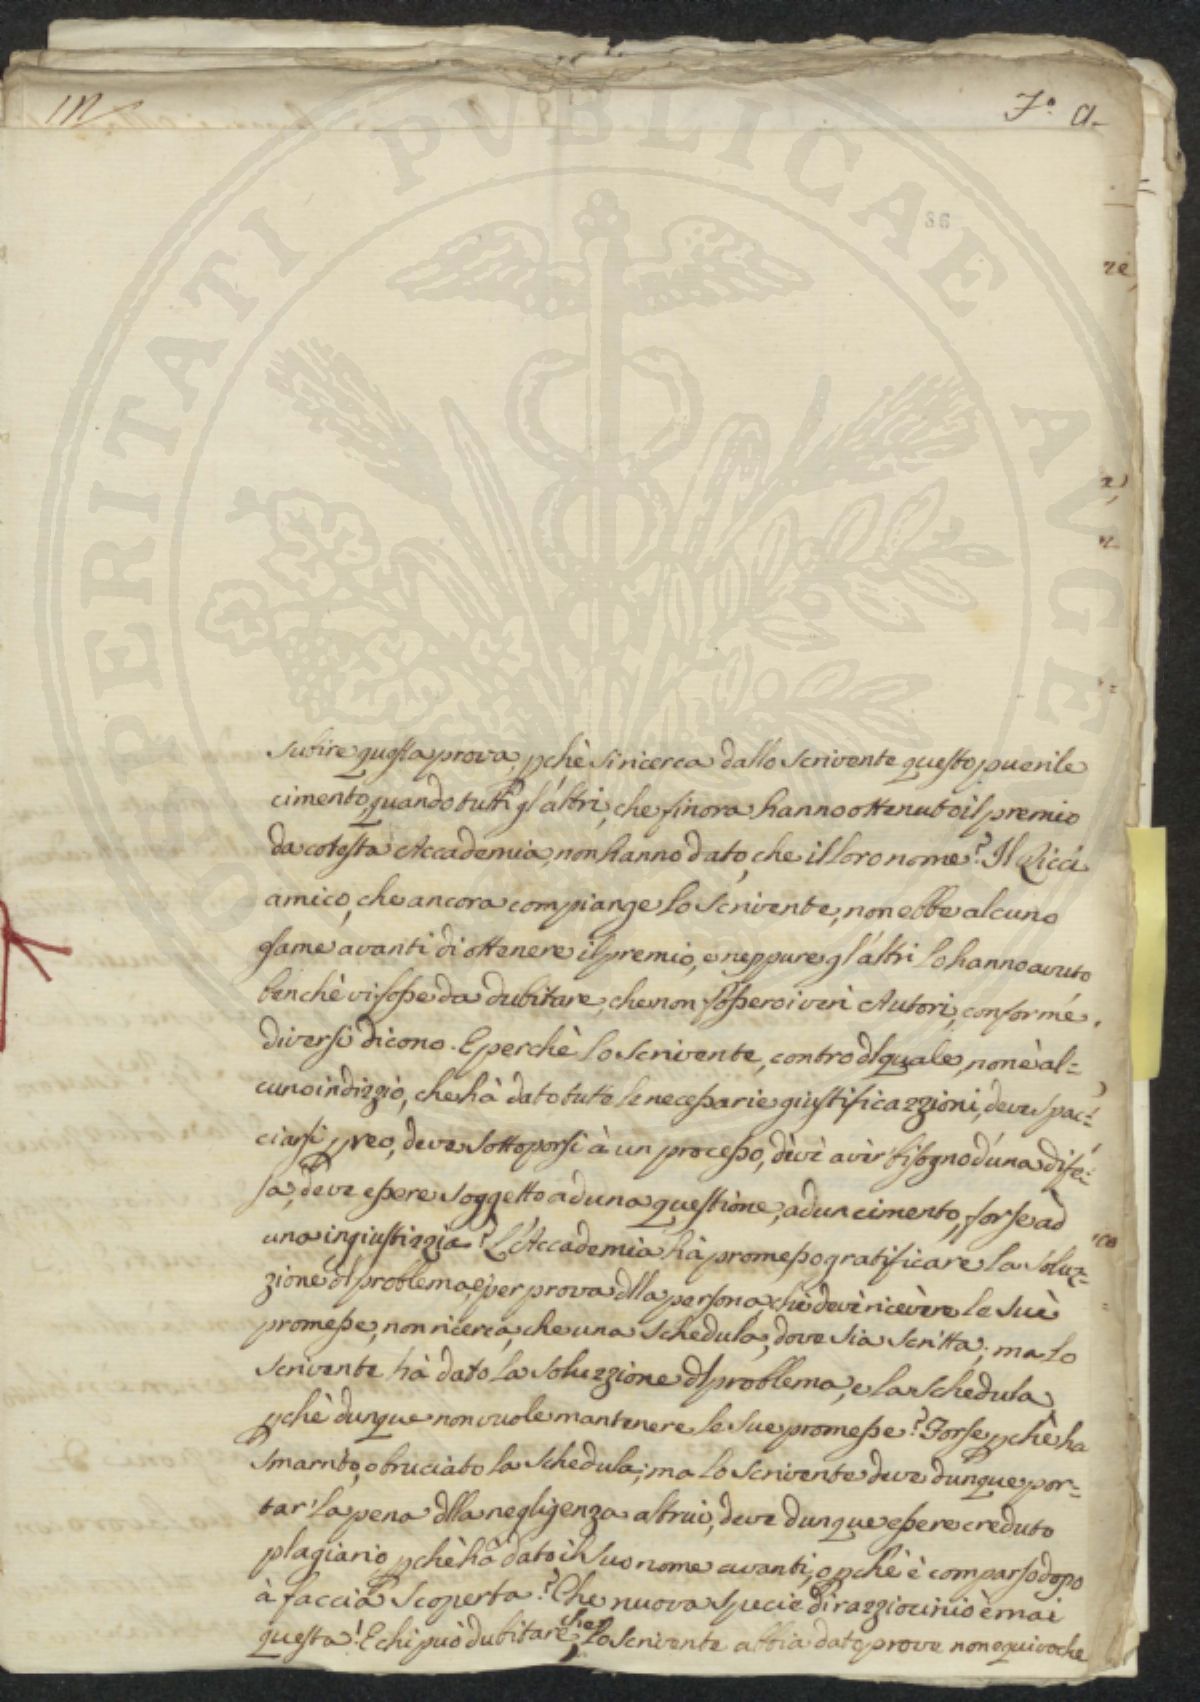 in
Fo. A.
PROSPERITATI PUBLICAE AUGE
36
re
subire questa prova, pchè si ricerca dallo scrivente questo puerile
cimento, quando tutti gl'altri, che finora hanno ottenuto il premio
da cotesta Accademia, non hanno dato, che il loro nome? Il Ricci
amico, che ancora compiange lo scrivente, non ebbe alcuno
esame avanti di ottenere il premio, e neppure gl'altri lo hanno avuto
benchè vi fosse da dubitare, che non fossero i veri Autori, conforme
diversi dicono. E perchè lo scrivente, contro dl quale, non è al=
cuno indizzio, che hà dato tutte le necessarie giustificazzioni, deve spac=
ciarsi p reo, deve sottoporsi à un processo, deve aver bisogno d'una dife=
sa, deve essere soggetto ad una questione, ad un cimento, forse ad
una ingiustizzia? L'Accademia hà promesso gratificare la soluz=
zione dl problema, e per prova dlla persona, che deve ricevere le sue
promesse, non ricerca, che una schedula, dove sia scritta; ma lo
scrivente hà dato la soluzzione dl problema, e la schedula,
pchè dunque non vuole mantenere le sue promesse? Forse pchè ha
smarrito, o bruciato la schedula; ma lo scrivente deve dunque por=
tar' la pena dlla negligenza altrui, deve dunque essere creduto
plagiario pchè hà dato il suo nome avanti, o pchè è comparso dopo
à faccia scoperta? Che nuova specie di razziocinio è mai
questa! E chi può dubitare, che lo scrivente abbia dato prove non equivoche